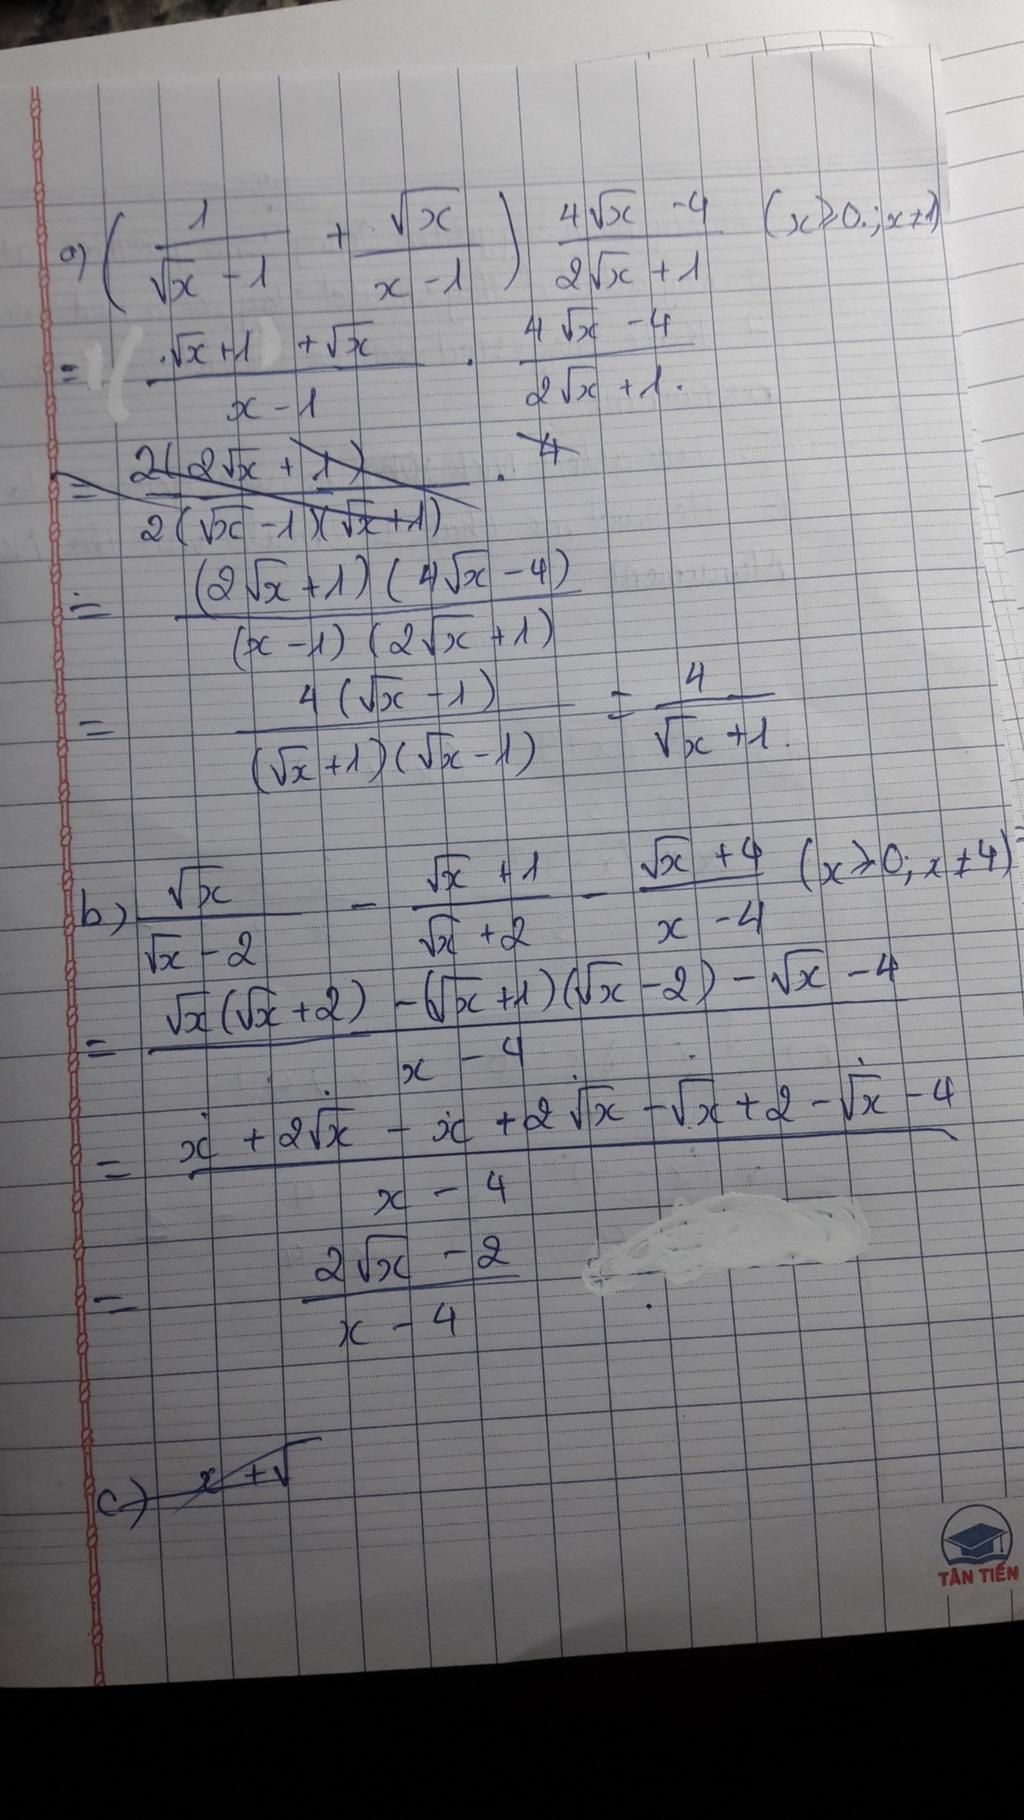 a) ( 1/(√x - 1) + √x/(x - 1) ) (4√x - 4)/(2√x + 1) (x ≥ 0; x ≠ 1)
= (√x + 1 + √x)/(x - 1) . (4√x - 4)/(2√x + 1)
= 2(2√x + 1)/(2(√x - 1)(√x + 1)) . 4
= (2√x + 1)(4√x - 4)/((x - 1)(2√x + 1))
= 4(√x - 1)/((√x + 1)(√x - 1)) = 4/(√x + 1)
b) √x/(√x - 2) - (√x + 1)/(√x + 2) - (√x + 4)/(x - 4) (x ≥ 0; x ≠ 4)
= (√x(√x + 2) - (√x + 1)(√x - 2) - √x - 4)/(x - 4)
= (x + 2√x - x + 2√x - √x + 2 - √x - 4)/(x - 4)
= (2√x - 2)/(x - 4)
c) x + √
TÂN TIẾN